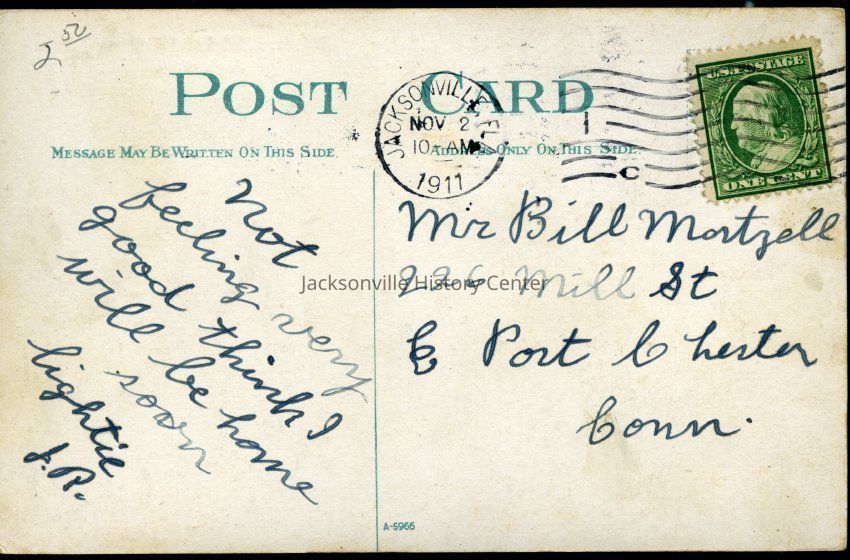 2 50
POST CARD
MESSAGE MAY BE WRITTEN ON THIS SIDE
ADDRESS ONLY ON THIS SIDE.
JACKSONVILLE, FLA.
NOV 2
10 AM
1911
1
C
U.S. POSTAGE
ONE CENT
Not
feeling very
good think I
will be home
soon
lightie
J.R.
Mr Bill Mortzell
226 Mill St
E Port Chester
Conn.
Jacksonville History Center
A-5966